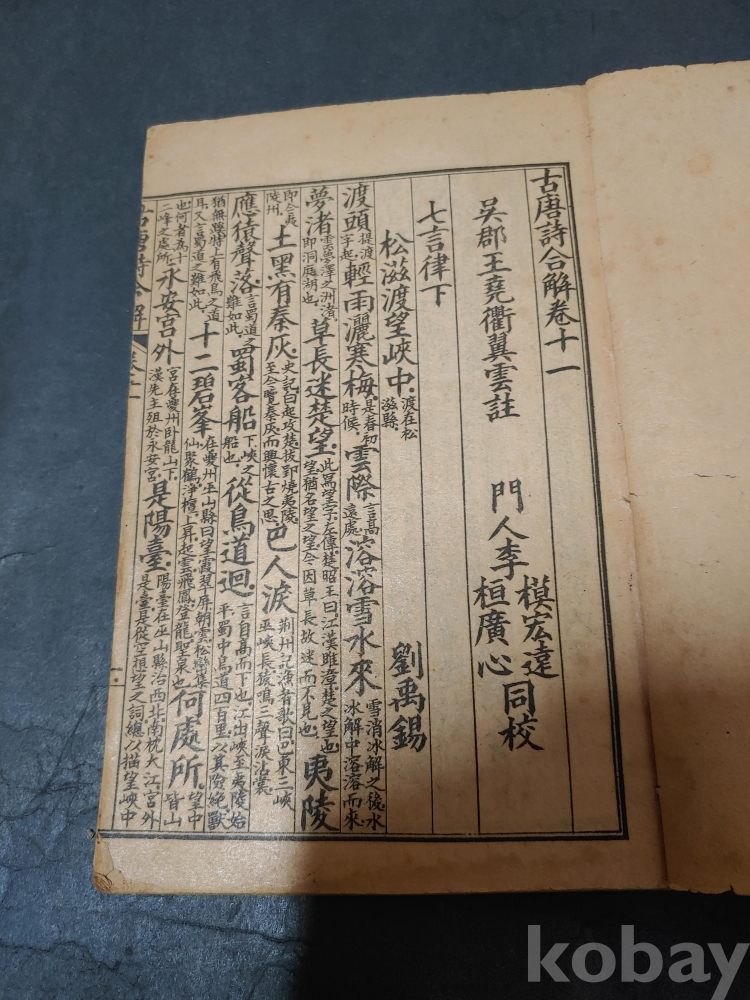 古唐詩合解卷十一
吳郡王堯衢翼雲註 門人李模宏遠桓廣心同校
七言律下
松滋渡望峽中渡在松滋縣 劉禹錫
渡頭提渡字起輕雨灑寒梅是春初時候雲際言高遠處溶溶雪水來雪消冰解之後水冰解中溶溶而來
夢渚雲夢澤之洲渚即洞庭湖也草長迷楚望此寫望字左傳楚昭王曰江漢雎漳楚之望也望猶名望之望今因草長故迷而不見也夷陵
即今夷陵州土黑有秦灰史記白起攻楚拔郢燒夷陵至今覽秦灰而興懷古之思巴人淚荆州記漁者歌曰巴東三峽巫峽長猿鳴三聲淚沾裳
應猿聲落言蜀道之難如此蜀客船下峽之船也從鳥道迴言自高而下也江出峽至夷陵始平蜀中鳥道四百里以其險絶獸
猶無蹊特上有飛鳥之道耳又言蜀道之難如此十二碧峯在夔州巫山縣曰望霞翠屏朝雲松巒集仙聚鶴淨壇上昇起雲飛鳳登龍聖泉也何處所望中皆山
也何者為十二峰之處所永安宮外宮在夔州卧龍山下漢先主殂於永安宮是陽臺陽臺在巫山縣治西北南枕大江宮外是臺是從空想望之詞總以描望峽中
古唐詩合解 卷十一
kobay